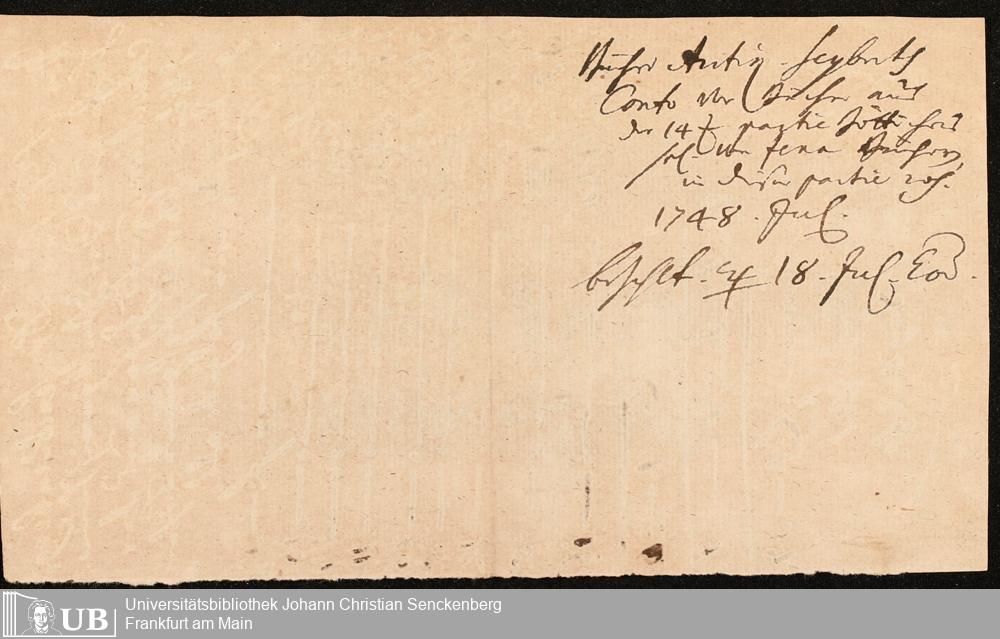 Bücher Antiq Seyberts
Conto Bücher aus
der 14t partie
sel. von Jena Büchern,
in dieser partie
1748. Jul.
bezahlt ♃ 18. Jul. Eod.
UB
Universitätsbibliothek Johann Christian Senckenberg
Frankfurt am Main